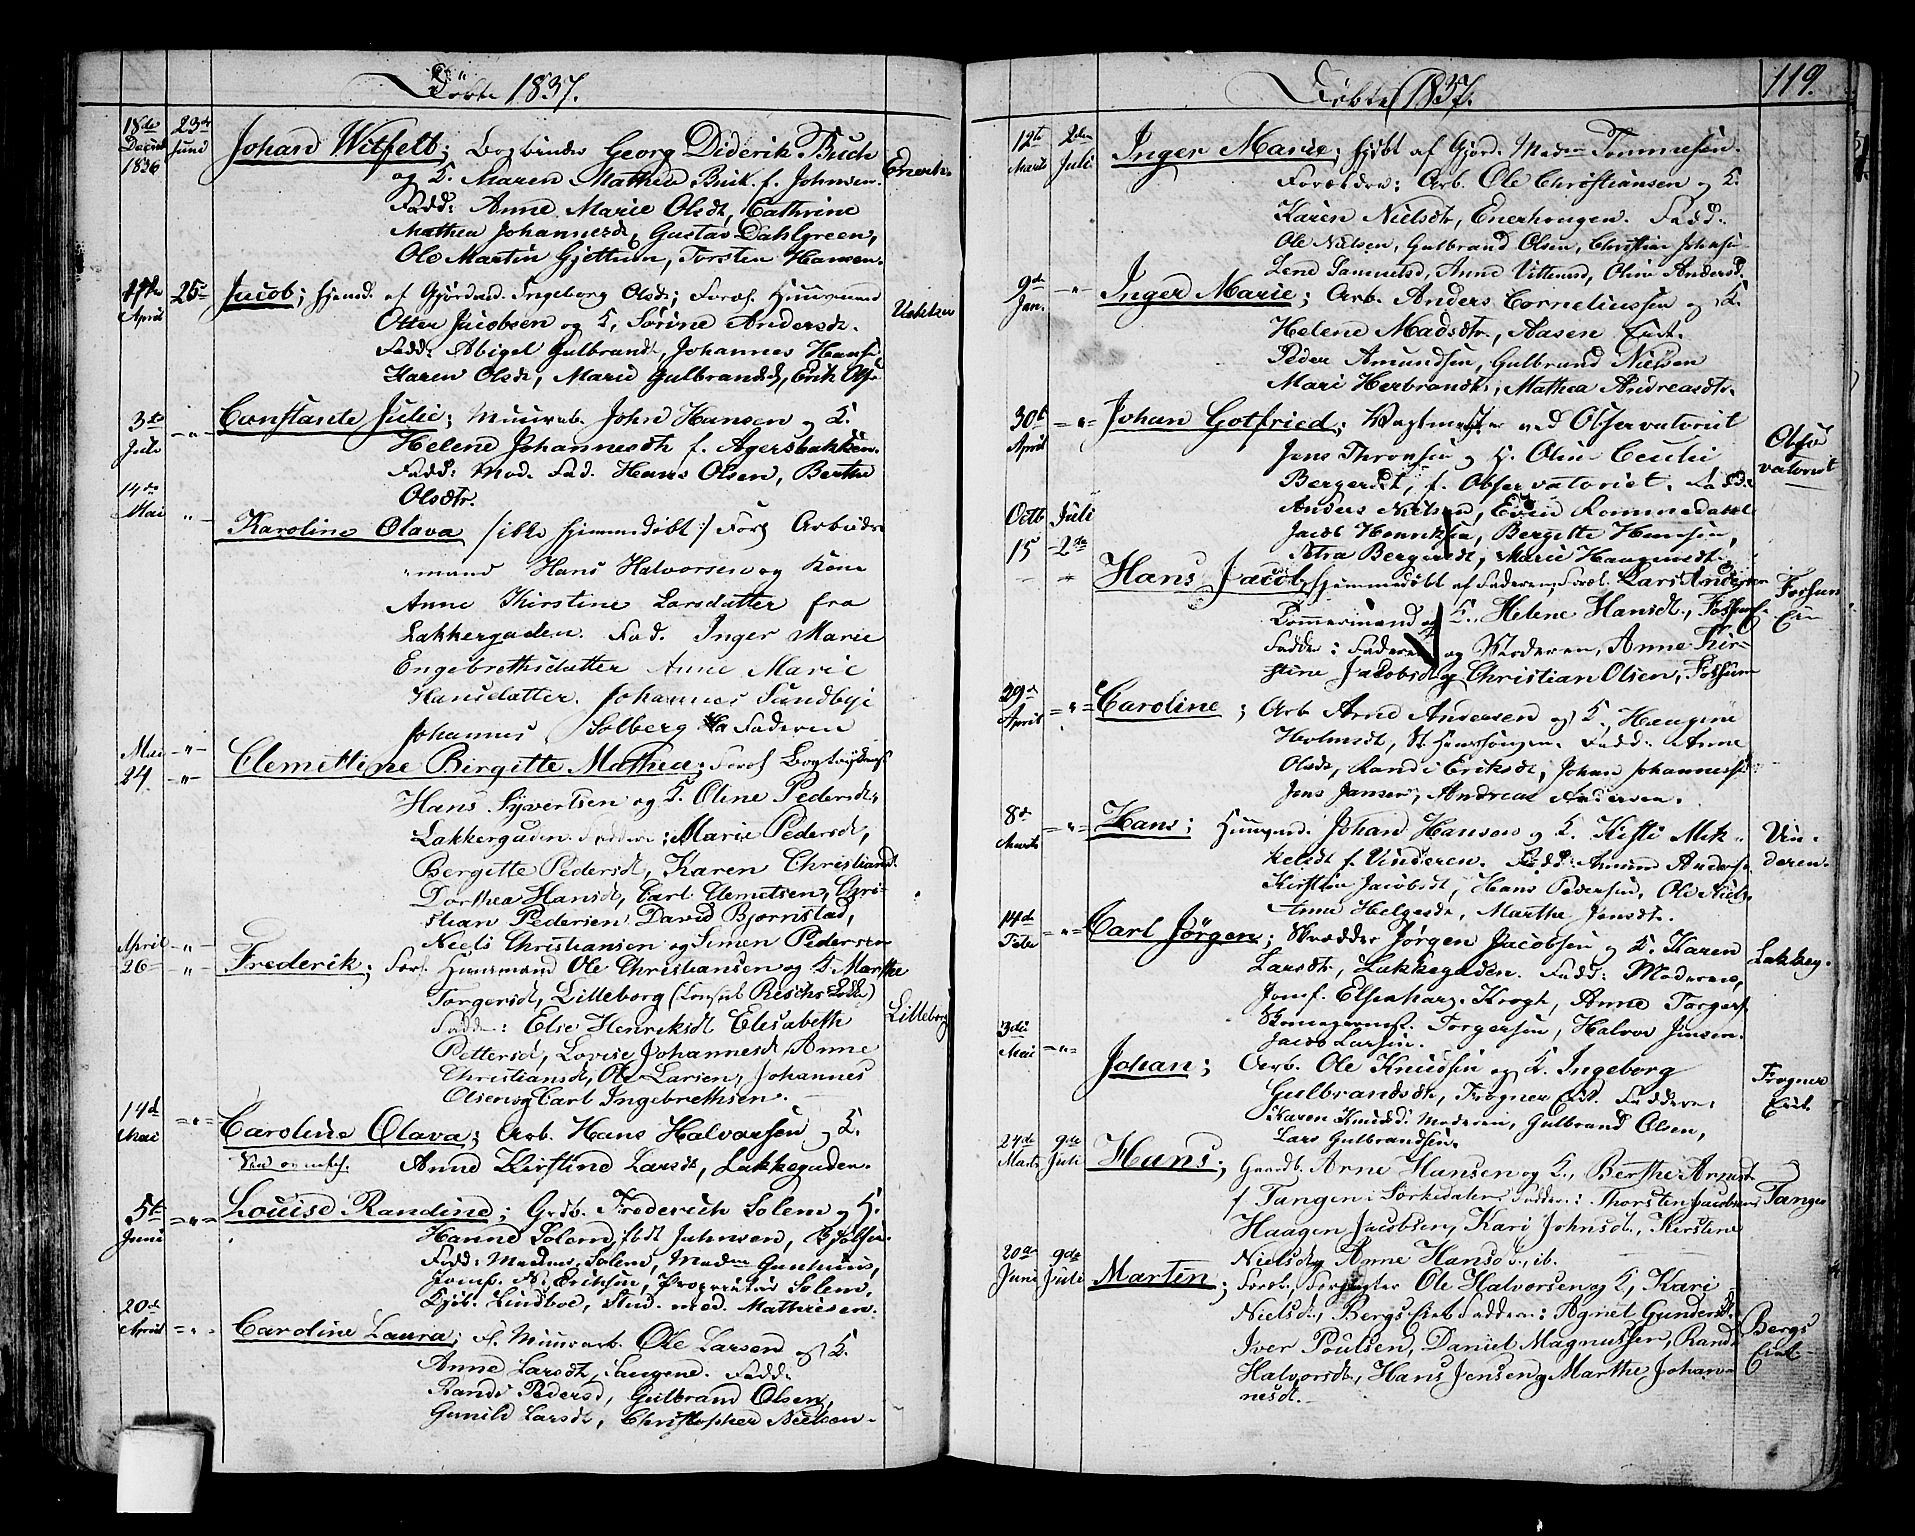 Döbte 1837.
18de Decemb 1836
23de Juni
Johan Witfelt; Bogbinder Georg Diderik Buch
og K. Maren Mathea Buck f. Johnsen.
Fadd: Anne Marie Olsdt, Cathrine
Mathea Johannesd, Gustav Dahlgreen,
Ole Martin Gjettum, Torsten Hansen.
Enerh.
April
25
Jacob; hjemd. af Gjordmd. Ingeborg Olsdt; Foræl. Huusmand
Otter Jacobsen og K. Sörine Andersdt.
Fadd: Abigel Gulbrandt, Johannes Hans.
Karen Olsdt, Marie Gulbrandsd, Erik Ols.
3de Juli
Constante Julie; Muurarb. John Hansen og K.
Helene Johannesdt f. Agersbakken.
Fadd: Mod. Fad. Hans Olsen, Berthe
Olsdtr.
14de Mai
Karoline Olava /:ikke hjemmedöbt:/ For. Arbeids
mand Hans Halvorsen og Kone
Anne Kirstine Larsdatter fra
Lakkergaden. Fad. Inger Marie
Engebrethsdatter Anne Marie
Hansdatter. Johannes Sundbye
Johannes Solberg Faderen
Mai 24
Clemettine Birgitte Mathea; Foræl
Hans Syvertsen og K. Oline Pedersdt,
Lakkergaden. Faddere: Marie Pedersdt,
Bergitte Pedersdt, Karen Christiansd
Dorthea Hansdt, Carl Clemetsen, Chri-
stian Pedersen David Bjørnstad,
Niels Christiansen og Simen Pedersen
April 26
Frederik; For. Huusmand Ole Christiansen og K. Marthe
Torgersdt, Lilleborg (Consul Reichs Lökke)
Fadde: Else Henriksdt Elisabeth
Pettersdt, Lovise Johannesdt, Anne
Christiansdt, Ole Larsen, Johannes
Olsen og Carl Ingebrethsen.
Lilleborg
14d Mai
Caroline Olava; Arb. Hans Halvorsen og K.
Anne Kirstine Larsdt, Lakkegaden.
5te Juni
Louise Randine; Grdb. Frederich Solem og K.
Hanne Solem, født Juhnsen, Bjölsen.
Fadd: Madme Solem, Madm
Jomf. Eriksen, Proprietær Solem,
Kjöb. Lindboe, Stud. med. Mathiesen.
20de April
Caroline Laura; f. Muurarb. Ole Larsen og K.
Anne Larsdt, Langene. Fadd:
Randi Pedersd, Gulbrand Olsen,
Gunild Larsdt, Christopher Nielsen.
Döbte 1837.
119.
12te Marts
2den Juli
Inger Marie; hjdbt af Gjord. Madm Tommesen.
Forældre: Arb. Ole Christiansen og K.
Karen Nielsdt, Enerhougen. Fadd:
Ole Nielsen, Gulbrand Olsen, Christin Johns
Lene Samuelsd, Anne, Olive Andersd.
9d Jan.
Inger Marie; Arb. Anders Corneliussen og K.
Helene Madsdtr, Aasen Eiet.
Peder Amundsen, Gulbrand Nielsen
Mari Herbrandt; Mathea Andreasdtr.
30t April
Johan Gotfried; Vagtmester ved Observatoriet
Jens Thronsen og K. Oline Cecilie
Bergersdt, f. Observatoriet. Fadd:
Anders Nielsen, Even Rommedahl
Jacob Henriksen, Bergitte Hansen,
Petra Bergersdt, Marie Haagensdt.
Obser
vatoriet
Octb 15
Juli 2de
Hans Jacob, hjemmedöbt af Faderen, Foræl. Lars Andersen
Tömmermand og K. Helene Hansdt., Fossum
Fadde: Faderen og Moderen, Anne Kir-
stine Jacobsdt og Christian Olsen, Fossum
Fossum
Eie
29d April
Caroline; Arb. Arne Andersen og K.
Holmsdt, St. Hanshougen. Fadd: Anne
Olsdt, Randi Eriksdt, Johan Johannessen
Jens Jansen, Andreas Andersen.
8d Marts
Hans; Huusmd. Johan Hansen og K. Kirsti Mik-
kelsdt f. Vinderen. Fadd: Amund Anders.
Kirstine Jacobsdt, Hans Pedersen, Ole Niels.
Anne Helgesdt, Marthe Jensdt.
Vin-
deren.
14de Febr
Carl Jörgen; Skrædder Jörgen Jacobsen og K. Karen
Larsdt, Lakkegaden. Fadd: Moderen,
Jomf. Krogh, Anne Torgers.
Skomagermst. Torgersen, Halvor Jensen
Jacob Larsen.
Lakkeg.
3die Mai
Johan; Arb. Ole Knudsen og K. Ingeborg
Gulbrandsdt, Frogner Eiet. Faddere,
Karen Knudsd. Moderen, Gulbrand Olsen,
Lars Gulbrandsen.
Frogner
Eiet.
24de Marts
9de Juli
Hans; Gaardb. Arne Hansen og K., Berthe Arnesdt
f Tangen i Sörkedalen, Faddere: Thorsten Jacobsen
Haagen Jacobsen, Kari Johnsdt., Kirstene
Nielsdt og Anne Hansd., ib.
Tangen
20de Juni
9de Juli
Marten; Foræl. Forpagter Ole Halvorsen og K, Kari
Nielsd., Bergs Eiet Faddere: Agnet Gundersdt
Iver Poulsen, Daniel Magnussen, Randi
Halvorsdt., Hans Jensen og Marthe Johan-
nesdt.
Bergs
Eiet.